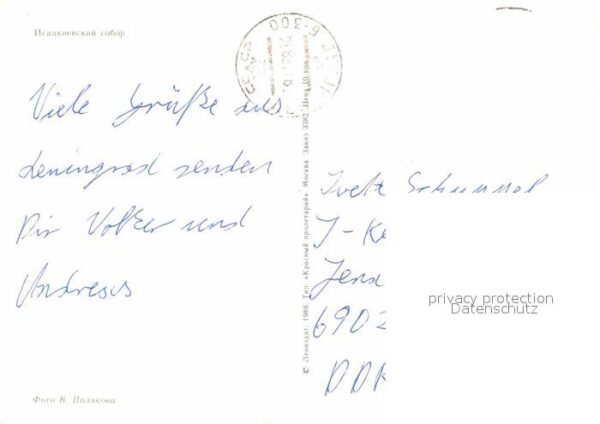 Исаакиевский собор
Viele Grüße aus
Leningrad senden
Dir Volker und
Andreas
Фото В. Полякова
© Лениздат. 1988. Тип. «Красный пролетарий». Москва. Заказ 3382. Цена 10 коп.
6-300
J-Ke
Jena
690
DDR
privacy protection
Datenschutz